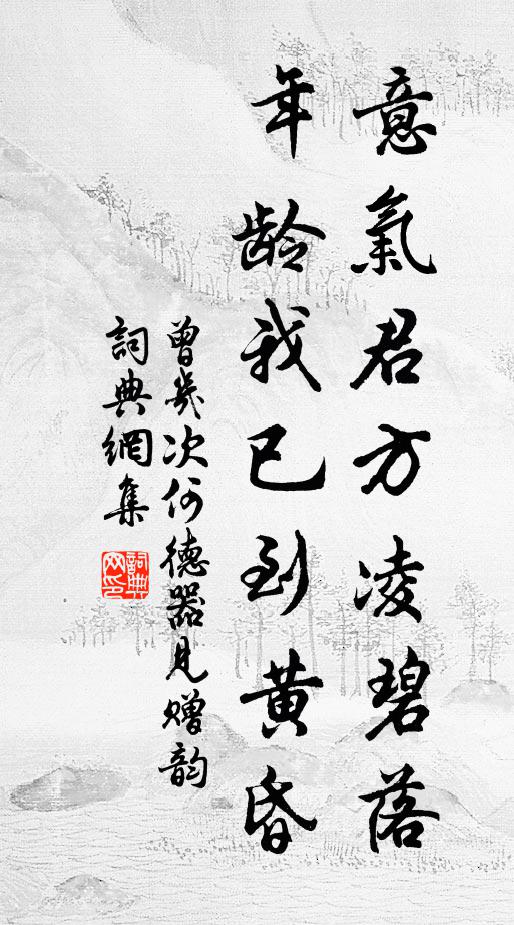 意氣君方凌碧落
年龄我已到黄昏
曾幾次何德器見赠韵
詞典網集
詞典網印